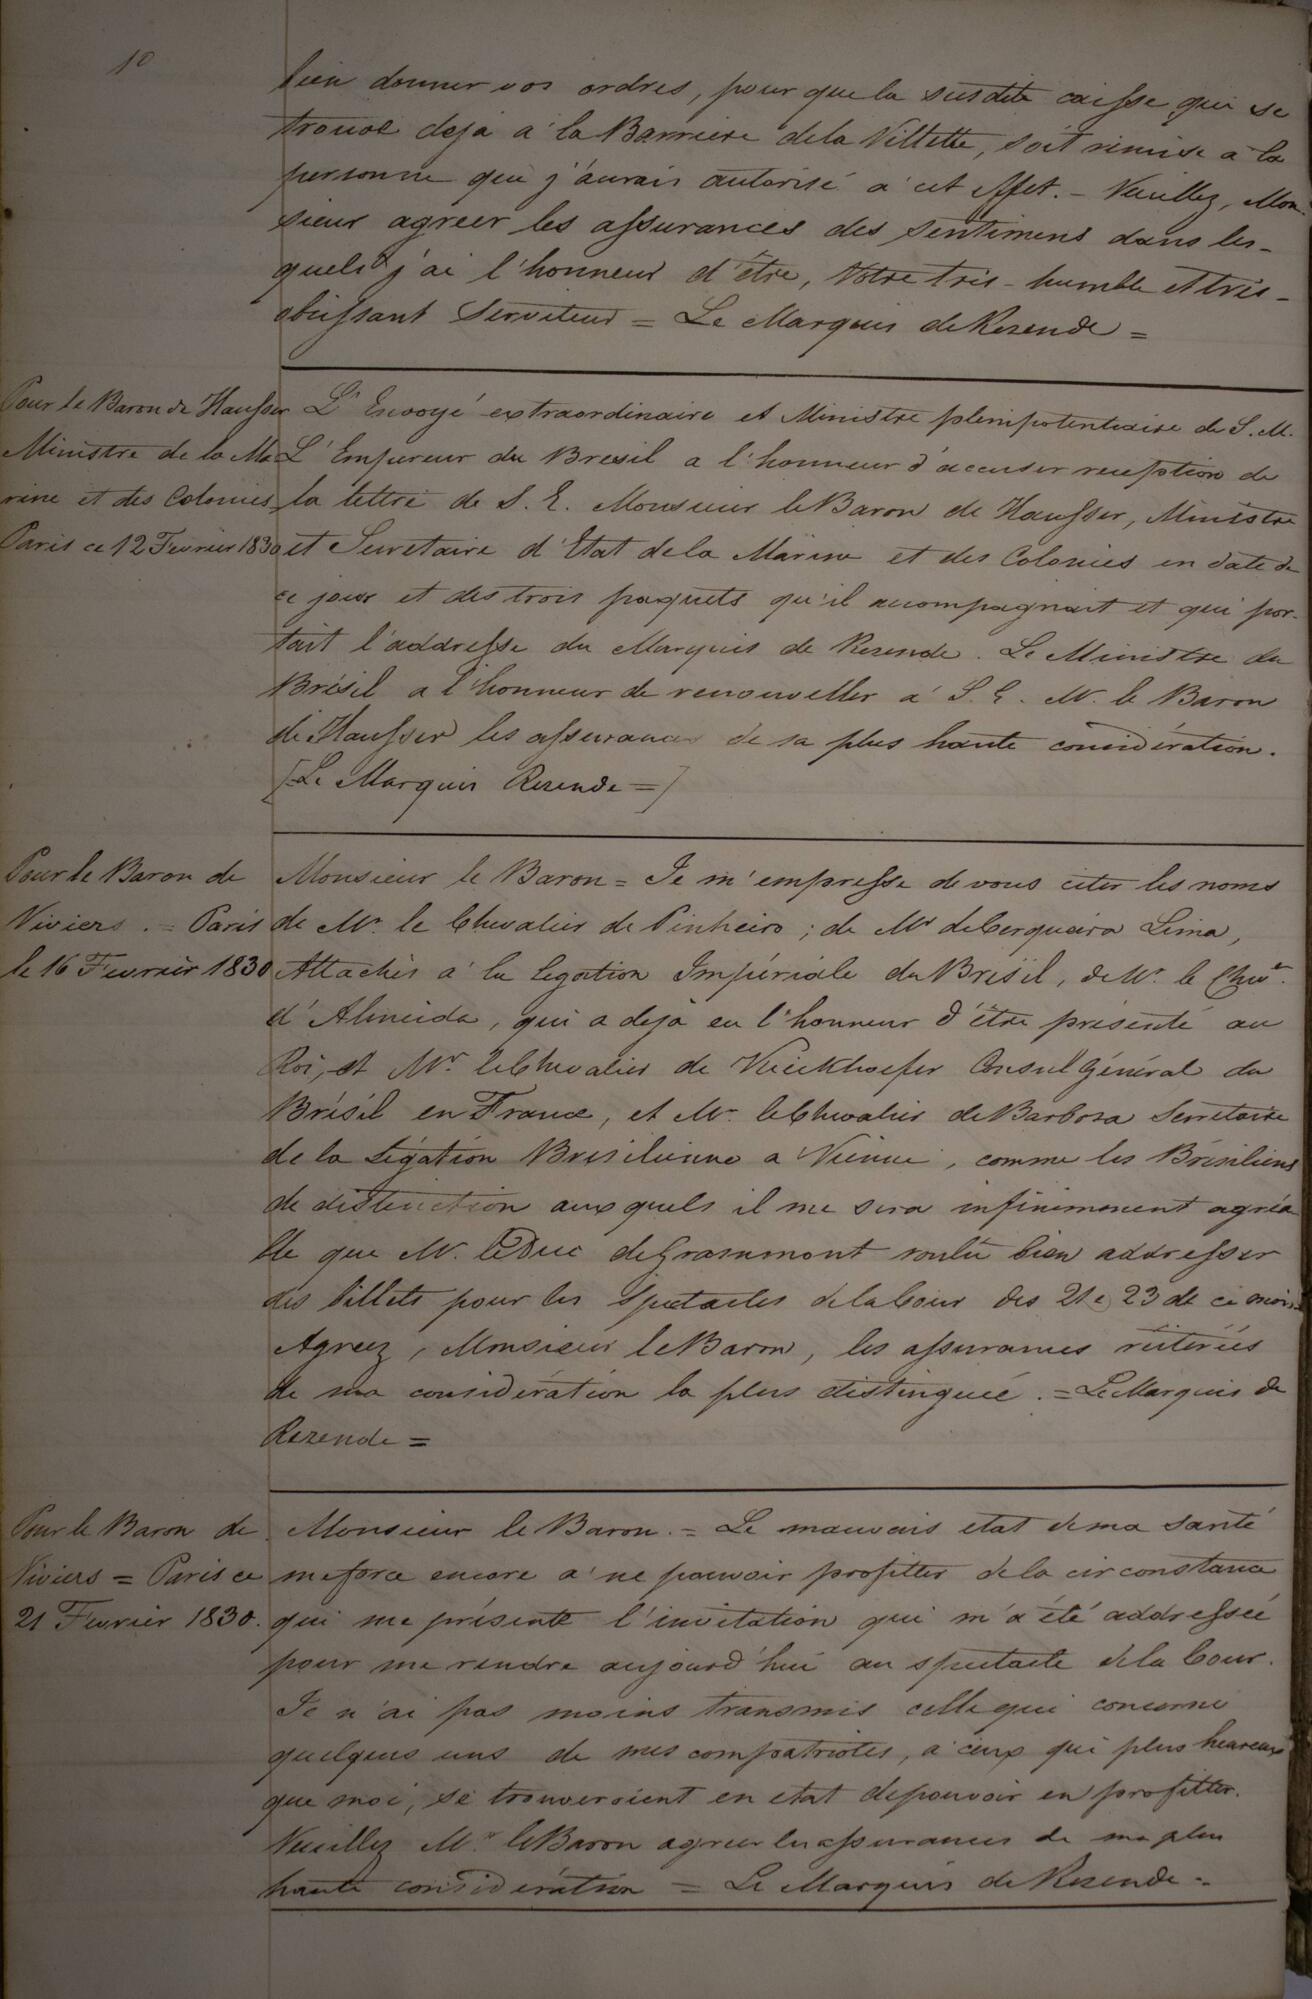 10
bien donner vos ordres, pour que la susdite caisse qui se
trouve deja a la Barriere de la Villette, soit remise a la
personne que j'aurais autorisé a cet effet. – Veuillez, Mon-
sieur agreer les assurances des sentimens dans les-
quels j'ai l'honneur d'être, Votre tres-humble et tres-
obeissant Serviteur = Le Marquis de Resende =
Pour le Baron de Hausser
Ministre de la Ma
rine et des Colonies
Paris ce 12 Fevrier 1830
L'Envoyé extraordinaire et Ministre plenipotentiaire de S. M.
L'Empereur du Bresil a l'honneur d'accuser reception de
la lettre de S. E. Monsieur le Baron de Hausser, Ministre
et Secretaire d'Etat de la Marine et des Colonies en date de
ce jour et des trois paquets qu'il accompagnait et qui por-
tait l'addresse du Marquis de Resende. Le Ministre du
Brésil a l'honneur de renouveller a S. E. Mr. le Baron
de Hausser les assurances de sa plus haute consideration.
[Le Marquis Resende =]
Pour le Baron de
Viviers . = Paris
le 16 Fevrier 1830
Monsieur le Baron = Je m'empresse de vous citer les noms
de Mr. le Chevalier de Pinheiro ; de Mr de Cerqueira Lima,
Attachés a la legation Impériale du Bresil, de Mr. le Chevr.
d'Almeida, qui a dejà eu l'honneur d'être présenté au
Roi, et Mr. le Chevalier de Vieekhoefer Consul Général du
Brésil en France, et Mr. le Chevalier de Barbosa Secretaire
de la Légation Bresilienne a Vienne, comme les Brésiliens
de distinction auxquels il me sera infinimement agréa
ble que Mr. le Duc de Grammont voulût bien addresser
des billets pour les Spectacles de la Cour des 21 e 23 de ce mois.
Agreez, Monsieur le Baron, les assurances réiterées
de ma considération la plus distinguée . = Le Marquis de
Resende =
Pour le Baron de
Viviers = Paris ce
21 Fevrier 1830.
Monsieur le Baron. = Le mauvais etat de ma santé
me force encore a ne pouvoir profitter de la circonstance
qui me présente l'invitation qui m'a été addressée
pour me rendre aujourd'hui au spectacle de la Cour.
Je n'ai pas moins transmis celle qui concerne
quelques uns de mes compatriotes, a ceux qui plus heureux
que moi, se trouveroient en etat de pouvoir en profitter.
Veuillez Mr. le Baron agreer les assurances de ma plus
haute consideration = Le Marquis de Resende =